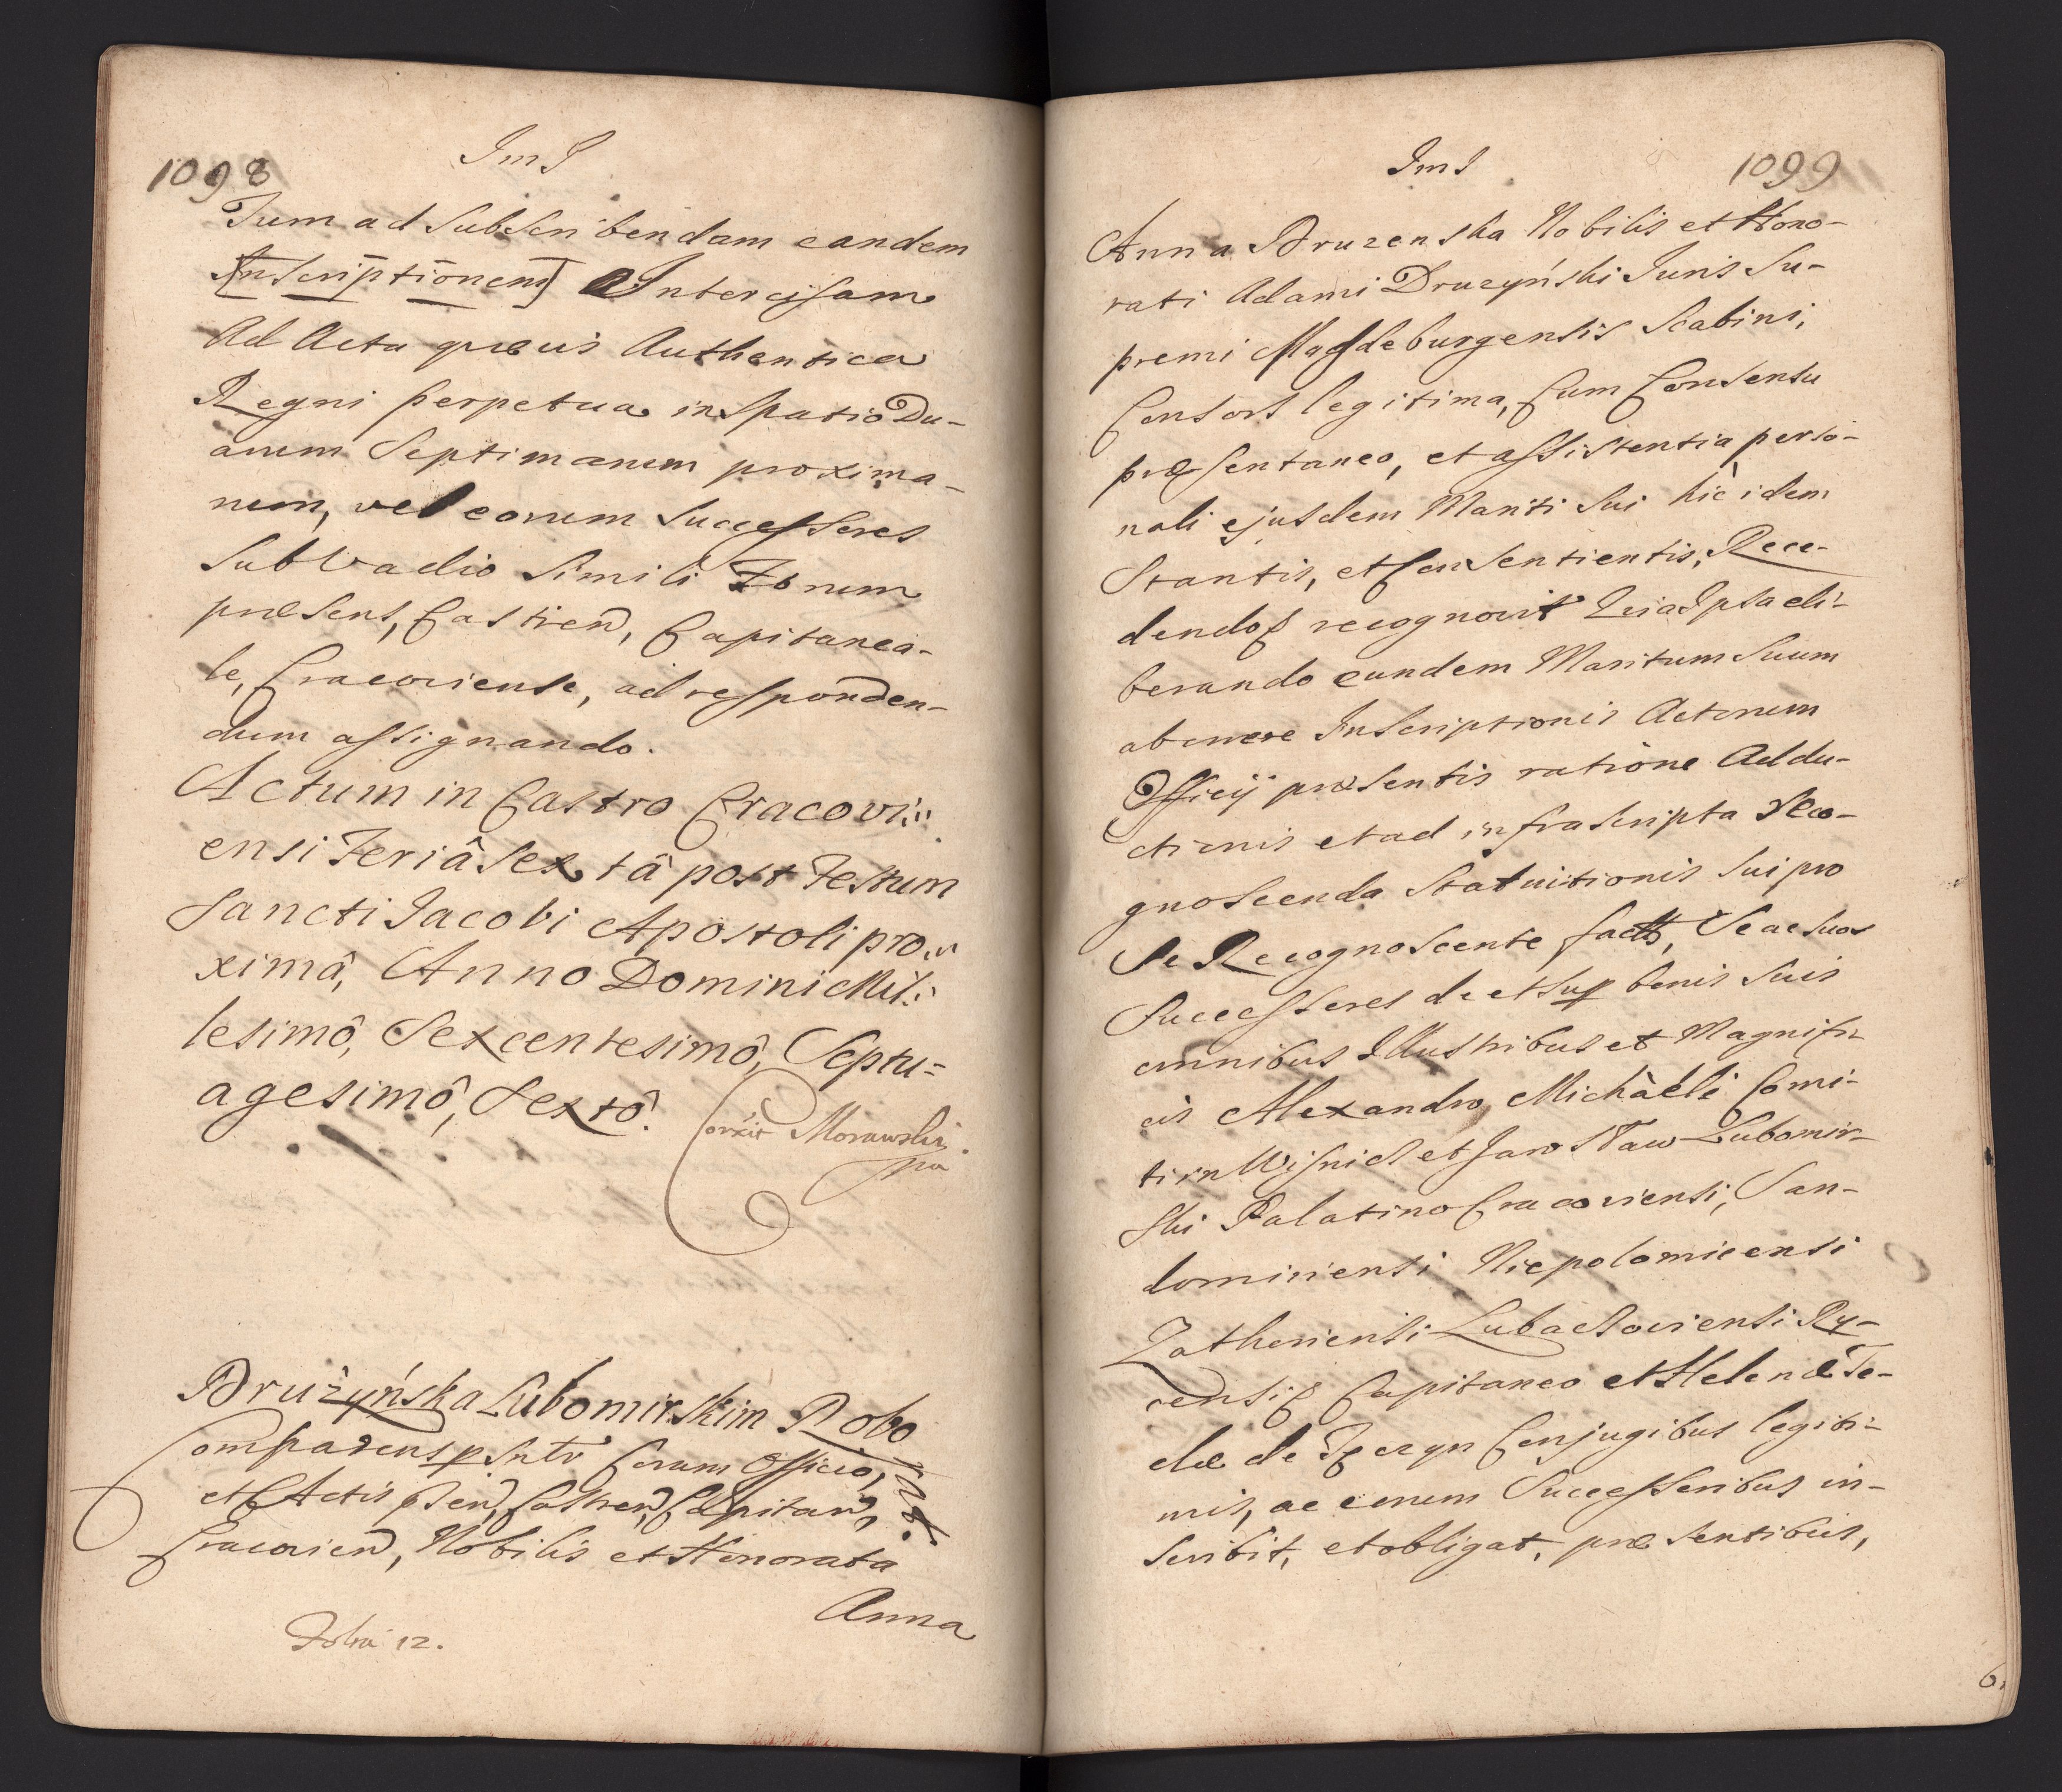 1098
Im I
Tum ad Subscribendam eandem
[Inscriptionem] Intercisam
Ad Acta quævis Authentica
Regni perpetua in Spatio Du-
arum Septimanarum proxima-
rum, vel eorum Successores
Sub Vadio Simili Forum
præsens, Castren, Capitanea-
le, Cracoviense, ad responden-
dum assignando.
Actum in Castro Cracovi-
ensi Feriâ Sextâ post Festum
Sancti Jacobi Apostoli pro-
ximâ, Anno Domini Mil-
lesimô, Sexcentesimô, Septu=
agesimô, Sextô.
Corxit Morawski
mp
Drużyńska Lubomirskim Robo-
rat.
Comparens psntr Coram Officio,
et Actis psen, Castren, Capitan,
Cracovien, Nobilis et Honorata
Anna
Folia 12.
Im I
1099
Anna Druzenska Nobilis et Hono-
rati Adami Druzyński Juris Su-
premi Magdeburgensis Scabini,
Consors legitima, Cum Consensu
præsentaneo, et assistentia perso-
nali ejusdem Mariti Sui hic idem
Stantis, et Consentientis, Rece-
dendoq recognovit Quia Ipsa eli-
berando eundem Maritum Suum
ab onere Inscriptionis Actorum
Officij præsentis ratione Addu-
ctionis et ad infrascripta Reco-
gnoscenda Statuitionis Sui pro
Se Recognoscente factæ, Se ac Suos
Successores de et sup bonis Suis
omnibus Illustribus et Magnifi-
cis Alexandro Michaeli Comi-
ti in Wisnicz et Jarosław Lubomir-
ski Palatino Cracoviensi, San-
domiriensi Niepolomicensi
Zathoriensi Lubaczoviensi Ry-
censiq Capitaneo et Helenæ Te-
clæ de Ossezyn Conjugibus legiti-
mis, ac eorum Successoribus in-
scribit, et obligat, præsentibus,